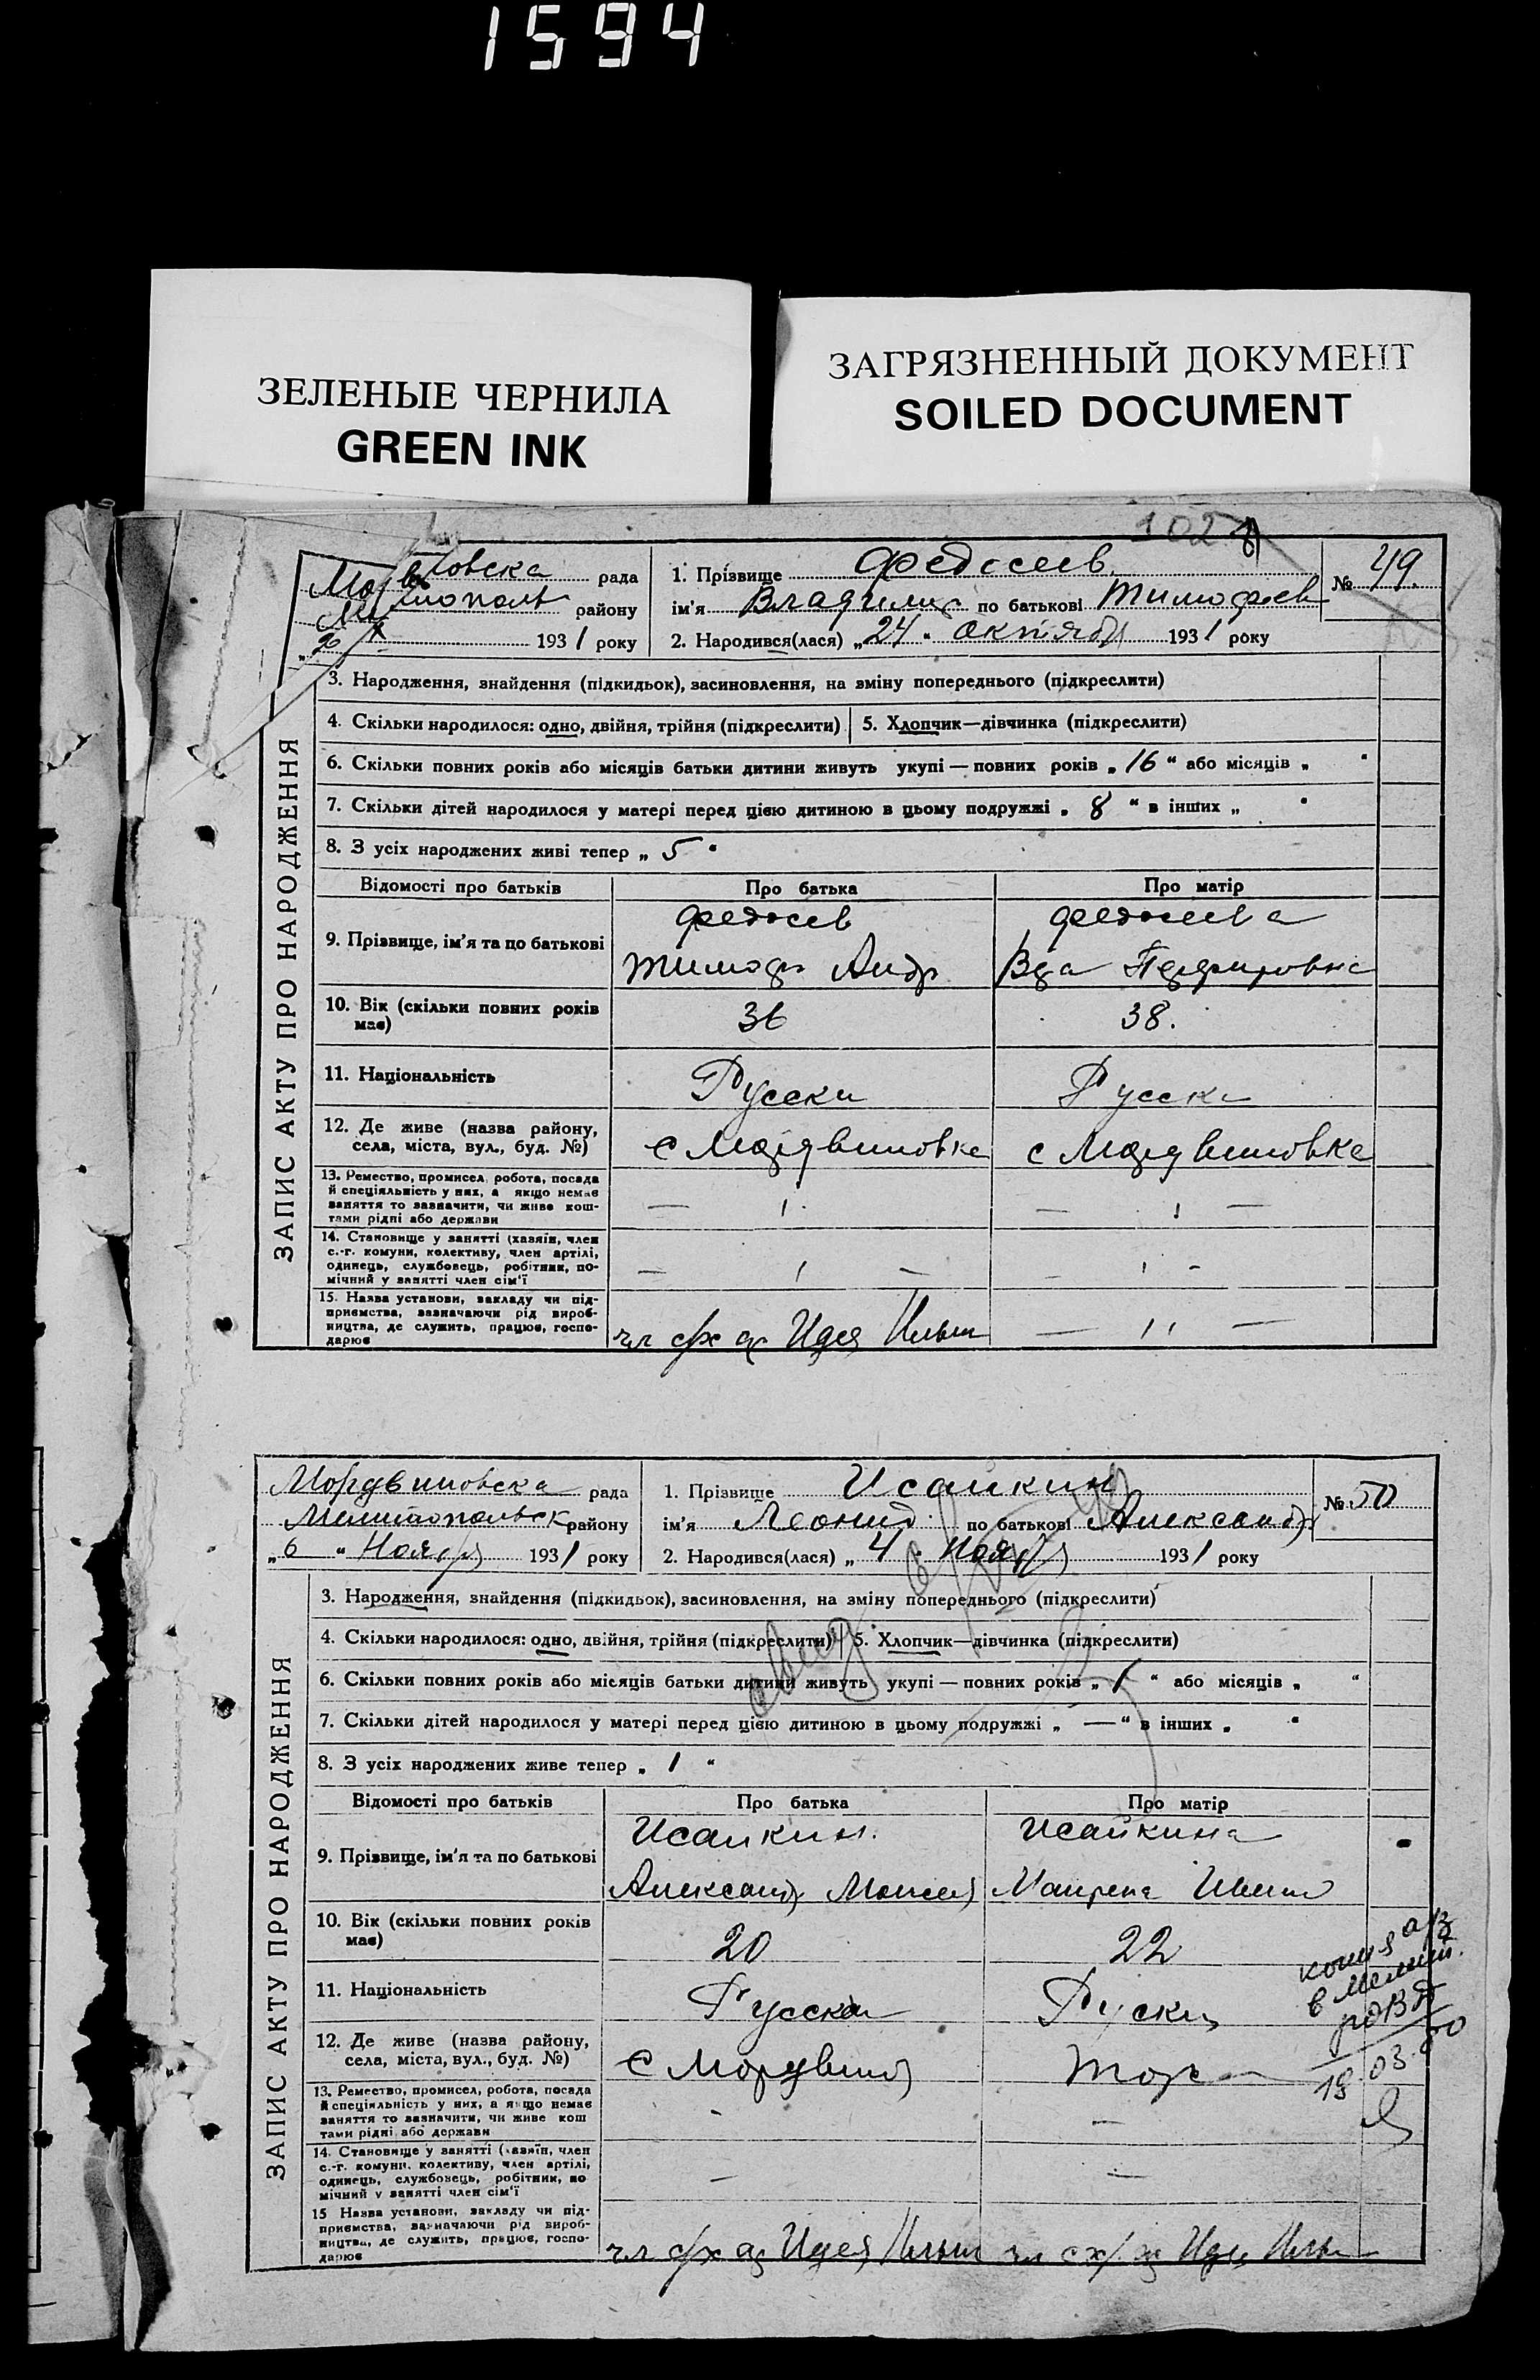 1594
ЗЕЛЕНЫЕ ЧЕРНИЛА
GREEN INK
ЗАГРЯЗНЕННЫЙ ДОКУМЕНТ
SOILED DOCUMENT
102
рада
району
1931 року
1. Прізвище Федосеев
ім'я Владимир по батькові Тимофеев
2. Народився(лася) „24“ октября 1931 року
№ 49.
ЗАПИС АКТУ ПРО НАРОДЖЕННЯ
3. Народження, знайдення (підкидьок), засиновлення, на зміну попереднього (підкреслити)
4. Скільки народилося: одно, двійня, трійня (підкреслити)
5. Хлопчик—дівчинка (підкреслити)
6. Скільки повних років або місяців батьки дитини живуть укупі — повних років „16“ або місяців „ “
7. Скільки дітей народилося у матері перед цією дитиною в цьому подружжі „8“ в інших „ “
8. З усіх народжених живі тепер „5“
Відомості про батьків
Про батька
Про матір
9. Прізвище, ім'я та по батькові
Федосев
Тимоф Андр
Федосеева
10. Вік (скільки повних років
має)
36
38.
11. Національність
Русски
Русски
12. Де живе (назва району,
села, міста, вул., буд. №)
с Мордвиновка
с Мордвиновка
13. Ремество, промисел, робота, посада
й спеціяльність у них, а якщо немає
заняття то зазначити, чи живе кош-
тами рідні або держави
14. Становище у занятті (хазяїн, член
с.-г. комуни, колективу, член артілі,
одинець, службовець, робітник, по-
мічний у занятті член сім'ї
15. Назва установи, закладу чи під-
приємства, зазначаючи рід вироб-
ництва, де служить, працює, госпо-
дарює
чл с/х ар Идея Ильич
Мордвиновска рада
Мелитопольск району
„6“ Ноября 1931 року
1. Прізвище Исайкин
ім'я Леонид по батькові Александр
2. Народився(лася) „4“ Ноября 1931 року
№ 50
ЗАПИС АКТУ ПРО НАРОДЖЕННЯ
3. Народження, знайдення (підкидьок), засиновлення, на зміну попереднього (підкреслити)
4. Скільки народилося: одно, двійня, трійня (підкреслити)
5. Хлопчик—дівчинка (підкреслити)
6. Скільки повних років або місяців батьки дитини живуть укупі — повних років „1“ або місяців „ “
7. Скільки дітей народилося у матері перед цією дитиною в цьому подружжі „—“ в інших „ “
8. З усіх народжених живе тепер „1“
Відомості про батьків
Про батька
Про матір
9. Прізвище, ім'я та по батькові
Исаикин.
Александр Моисей
Исайкина
10. Вік (скільки повних років
має)
20
22
11. Національність
Русски
Руски
12. Де живе (назва району,
села, міста, вул., буд. №)
с Мордвин
тож
13. Ремество, промисел, робота, посада
й спеціяльність у них, а якщо немає
заняття то зазначити, чи живе кош
тами рідні або держави
14. Становище у занятті (хазяїн, член
с.-г. комуни, колективу, член артілі,
одинець, службовець, робітник, по
мічний у занятті член сім'ї
15 Назва установи, закладу чи під-
приємства, зазначаючи рід вироб-
ництва, де служить, працює, госпо-
дарює
чл с/х ар Идея Ильич
чл сх/ ар Идея Ильич
копия а/з
в Мелит.